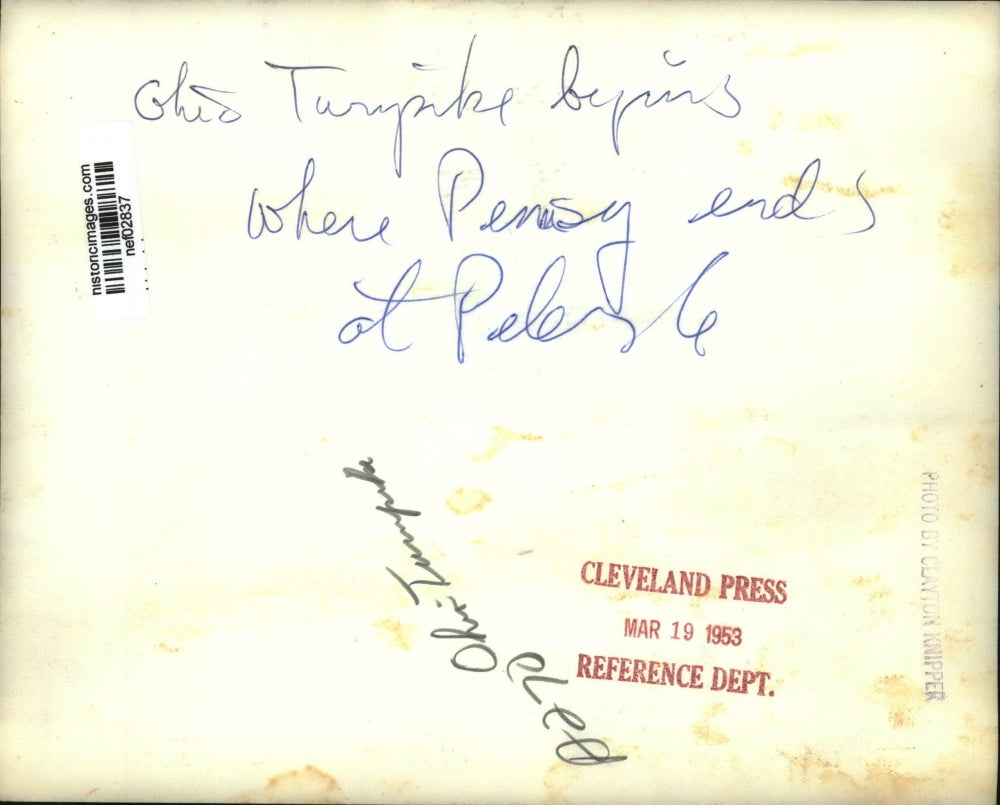 Ohio Turnpike begins
where Pennsy ends
at
historicimages.com
nef02837
Ohio Turnpike
CLEVELAND PRESS
MAR 19 1953
REFERENCE DEPT.
PHOTO BY CLAYTON KNIPPER